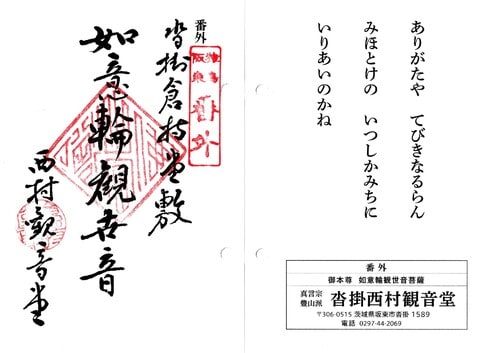 ありがたや てびきなるらん
みほとけの いつしかみちに
いりあいのかね
番外
御本尊 如意輪観世音菩薩
真言宗
豊山派
沓掛西村観音堂
〒306-0515 茨城県坂東市沓掛 1589
電話 0297-44-2069
番外
沓掛倉持堂敷
如意輪觀世音
西村観音堂
番外